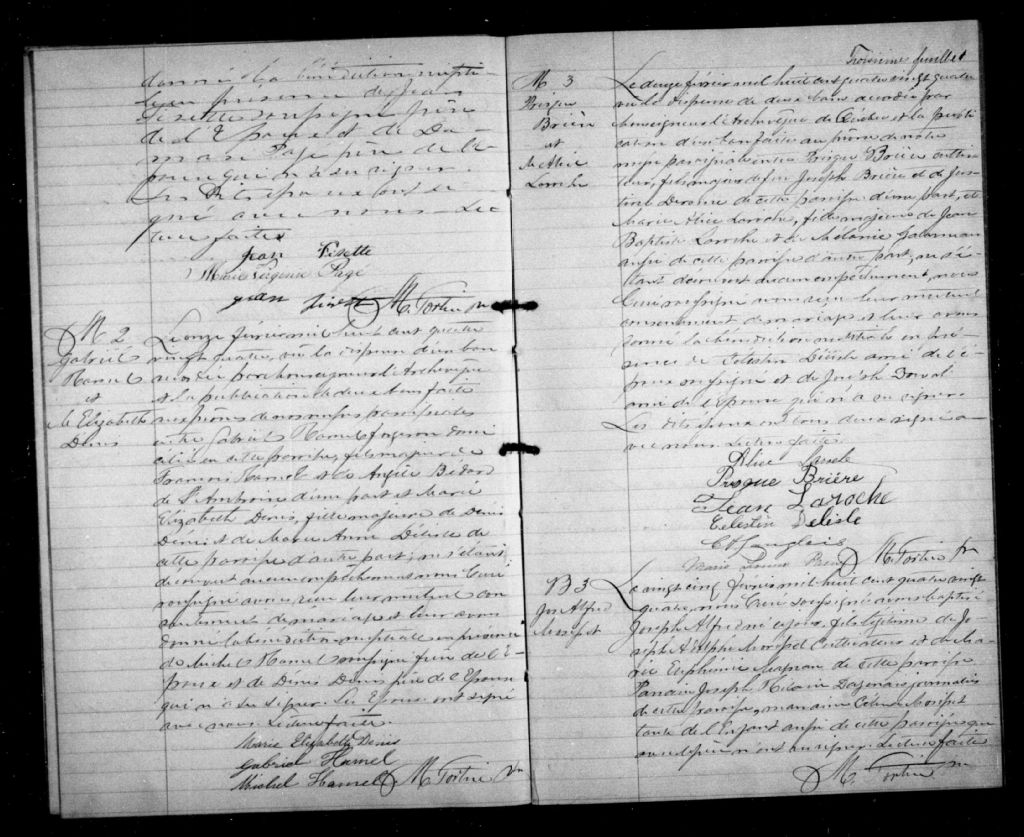 donné la bénédiction nupti-
ale en présence de Jean
Lisette soussigné père
de l'Epoux et de Da-
mase Pagé père de l'E-
pouse qui n'a su signer.
Les Dits époux ont si-
gné avec nous. Lec-
ture faite.
Jean Lisette
Marie Virginie Pagé
Jean M. Fortier Ptre
M 2
Gabriel
Hamel
et
M Elizabeth
Denis
Le onze février mil huit cent quatre
vingt quatre, vu la dispense d'un ban
accordée par Monseigneur l'Archevêque
et la publication de deux bans faite
aux prônes de nos messes paroissiales
entre Gabriel Hamel forgeron domi
cilié en cette paroisse, fils majeur de
François Hamel et de Angèle Bédard
de St Ambroise d'une part et Marie
Elizabeth Denis, fille majeure de Denis
Denis et de Marie Anne Délisle de
cette paroisse d'autre part; ne s'étant
découvert aucun empêchement nous Curé
soussigné avons reçu leur mutuel con
sentement de mariage et leur avons
donné la bénédiction nuptiale en présence
de Michel Hamel soussigné frère de l'E-
poux et de Denis Denis père de l'Epouse
qui n'a su signer. Les Epoux ont signé
avec nous. Lecture faite.
Marie Elizabeth Denis
Gabriel Hamel
Michel Hamel M. Fortier Ptre
Troisième feuillet
M 3
Prisque
Brière
et
M Alice
Laroche
Le douze février mil huit cent quatre vingt quatre
vu la dispense de deux bans accordée par
Monseigneur l'Archevêque de Québec et la publi
cation d'un ban faite au prône de notre
messe paroissiale entre Prisque Brière cultiva
teur, fils majeur de feu Joseph Brière et de Jus
tine Derome de cette paroisse d'une part, et
Marie Alice Laroche, fille majeure de Jean
Baptiste Laroche et de Mélanie
aussi de cette paroisse d'autre part; ne s'é
tant découvert aucun empêchement, nous
Curé soussigné avons reçu leur mutuel
consentement de mariage et leur avons
donné la bénédiction nuptiale en pré
sence de Célestin Délisle ami de l'é
poux soussigné et de Joseph
ami de l'Epouse qui n'a su signer.
Les dits époux ont tous deux signé a-
vec nous. Lecture faite.
Alice
Prisque Brière
Jean Laroche
Celestin Delisle
Langlois
Marie Louise M. Fortier Ptre
B 3
Jos Alfred
Morisset
Le vingt cinq février mil huit cent quatre vingt
quatre, nous Curé soussigné avons baptisé
Joseph Alfred né ce jour, fils légitime de Jo-
seph Adolphe Morisset Cultivateur et de Ma
rie Euphémie de cette paroisse
Parrain Joseph Hilaire journalier
de cette paroisse, marraine Célina Morisset
tante de l'enfant aussi de cette paroisse qui
n'ont su signer. Lecture faite
M. Fortier Ptre